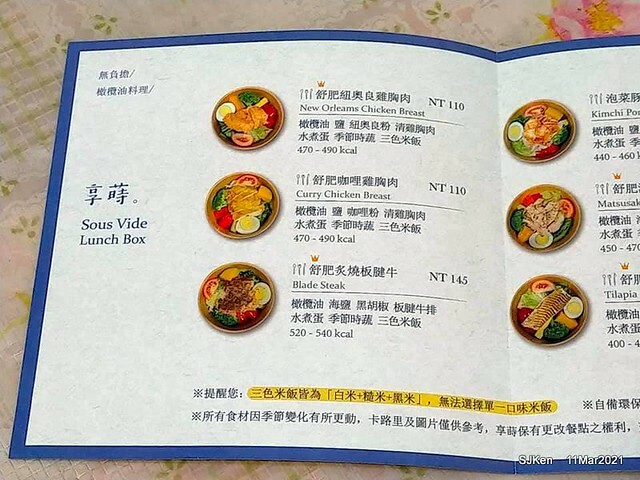 無負擔/
橄欖油料理/
享蒔。
Sous Vide
Lunch Box
舒肥紐奧良雞胸肉 NT 110
New Orleans Chicken Breast
橄欖油 鹽 紐奧良粉 清雞胸肉
水煮蛋 季節時蔬 三色米飯
470 - 490 kcal
舒肥咖哩雞胸肉 NT 110
Curry Chicken Breast
橄欖油 鹽 咖哩粉 清雞胸肉
水煮蛋 季節時蔬 三色米飯
470 - 490 kcal
舒肥炙燒板腱牛 NT 145
Blade Steak
橄欖油 海鹽 黑胡椒 板腱牛排
水煮蛋 季節時蔬 三色米飯
520 - 540 kcal
泡菜
Kimchi
橄欖油
水煮蛋 季
440 - 460
舒肥
Matsusak
橄欖油
水煮蛋 季
450 - 470
舒
Tilapia
橄欖油
水煮蛋
400 - 4
※提醒您：三色米飯皆為「白米+糙米+黑米」，無法選擇單一口味米飯
※自備環保
※所有食材因季節變化有所更動，卡路里及圖片僅供參考，享蒔保有更改餐點之權利，
SJKen 11Mar2021